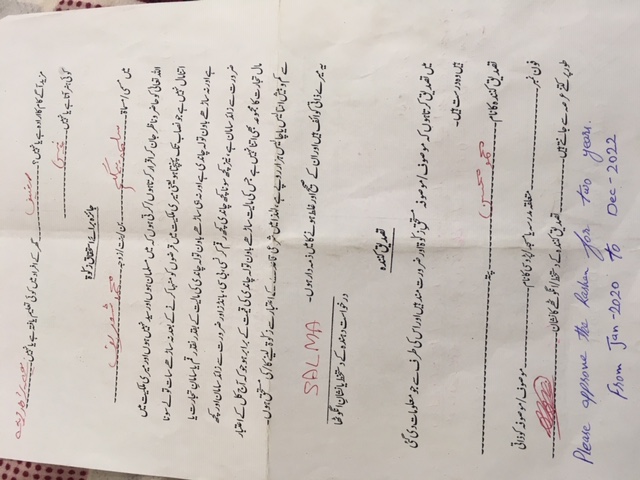 مزید آگے کام کا ارادہ ہے یا نہیں؟ نہیں گھر کے افراد میں کوئی تعلیم یافتہ ہے یا نہیں
کوئی ہنر آتا ہے یا نہیں نہیں
جائزہ برائے استحقاق زکوٰۃ
میں مسمی/مسماۃ سلمہ بیگم بن/بنت/زوجہ محمد شریف
اللہ تعالی کو حاضر و ناظر جان کر اقرار کرتا ہوں/کرتی ہوں کہ میں مسلمان ہوں اور سید نہیں ہوں اور میری ملکیت میں
اتنا مال نہیں ہے جو نصاب تک پہنچتا ہو یعنی میری ملکیت میں قرضوں کو منہا کرنے کے بعد نہ ساڑھے سات تولے سونا
ہے اور نہ ساڑھے باون تولہ چاندی ہے اور نہ ہی ساڑھے باون تولہ چاندی کی مالیت کے بقدر نقد رقم یا سامان تجارت یا
ضرورت سے زائد سامان ہے، نیز کچھ سونا کچھ چاندی کچھ رقم کرنسی، بی سی، بانڈز اور ضرورت سے زائد سامان اور کچھ
مال تجارت کا مجموعہ بھی اتنا نہیں ہے جس کی مالیت ساڑھے باون تولہ چاندی کی قیمت کے برابر ہو جو کہ آج کل کے اعتبار
سے کم و بیش انتالیس یا چالیس ہزار روپے ہے، لہٰذا میں شرعی قاعدے کے اعتبار سے زکوٰۃ لینے کا/کی مستحق ہوں۔
یہ میرے ذاتی کوائف ہیں اور ان کے صحیح اور غلط ہونے کا میں ذمہ دار ہوں۔
SALMA
درخواست دہندہ کے دستخط یا نشان انگوٹھا
تصدیق کنندہ
میں تصدیق کرتا ہوں کہ موصوف/موصوفہ مستحق زکوٰۃ اور ضرورت مند ہیں اور اس کی طرف سے جو معلومات دی گئی
ہیں وہ درست ہیں۔
تصدیق کنندہ کا نام محمد محسن پتہ
فون نمبر متعلقہ مدرسہ یا مسجد/پڑوسی کا نام موصوف/موصوفہ کو ذاتی
طور پر کتنے عرصہ سے جانتے ہیں تصدیق کنندہ کے دستخط/انگوٹھے کا نشان
Please approve the Rashen for two years.
From Jan-2020 to Dec-2022